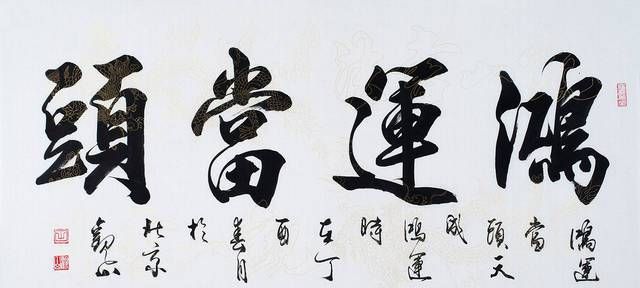 鴻運當頭
鴻運
當
頭天
成
鴻運
時
在丁
酉
春月
於
北京